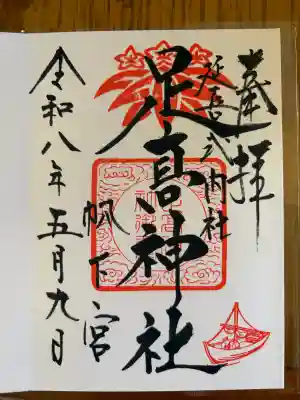 奉拝
延喜式内社
足髙神社
帆下宮
令和八年五月九日